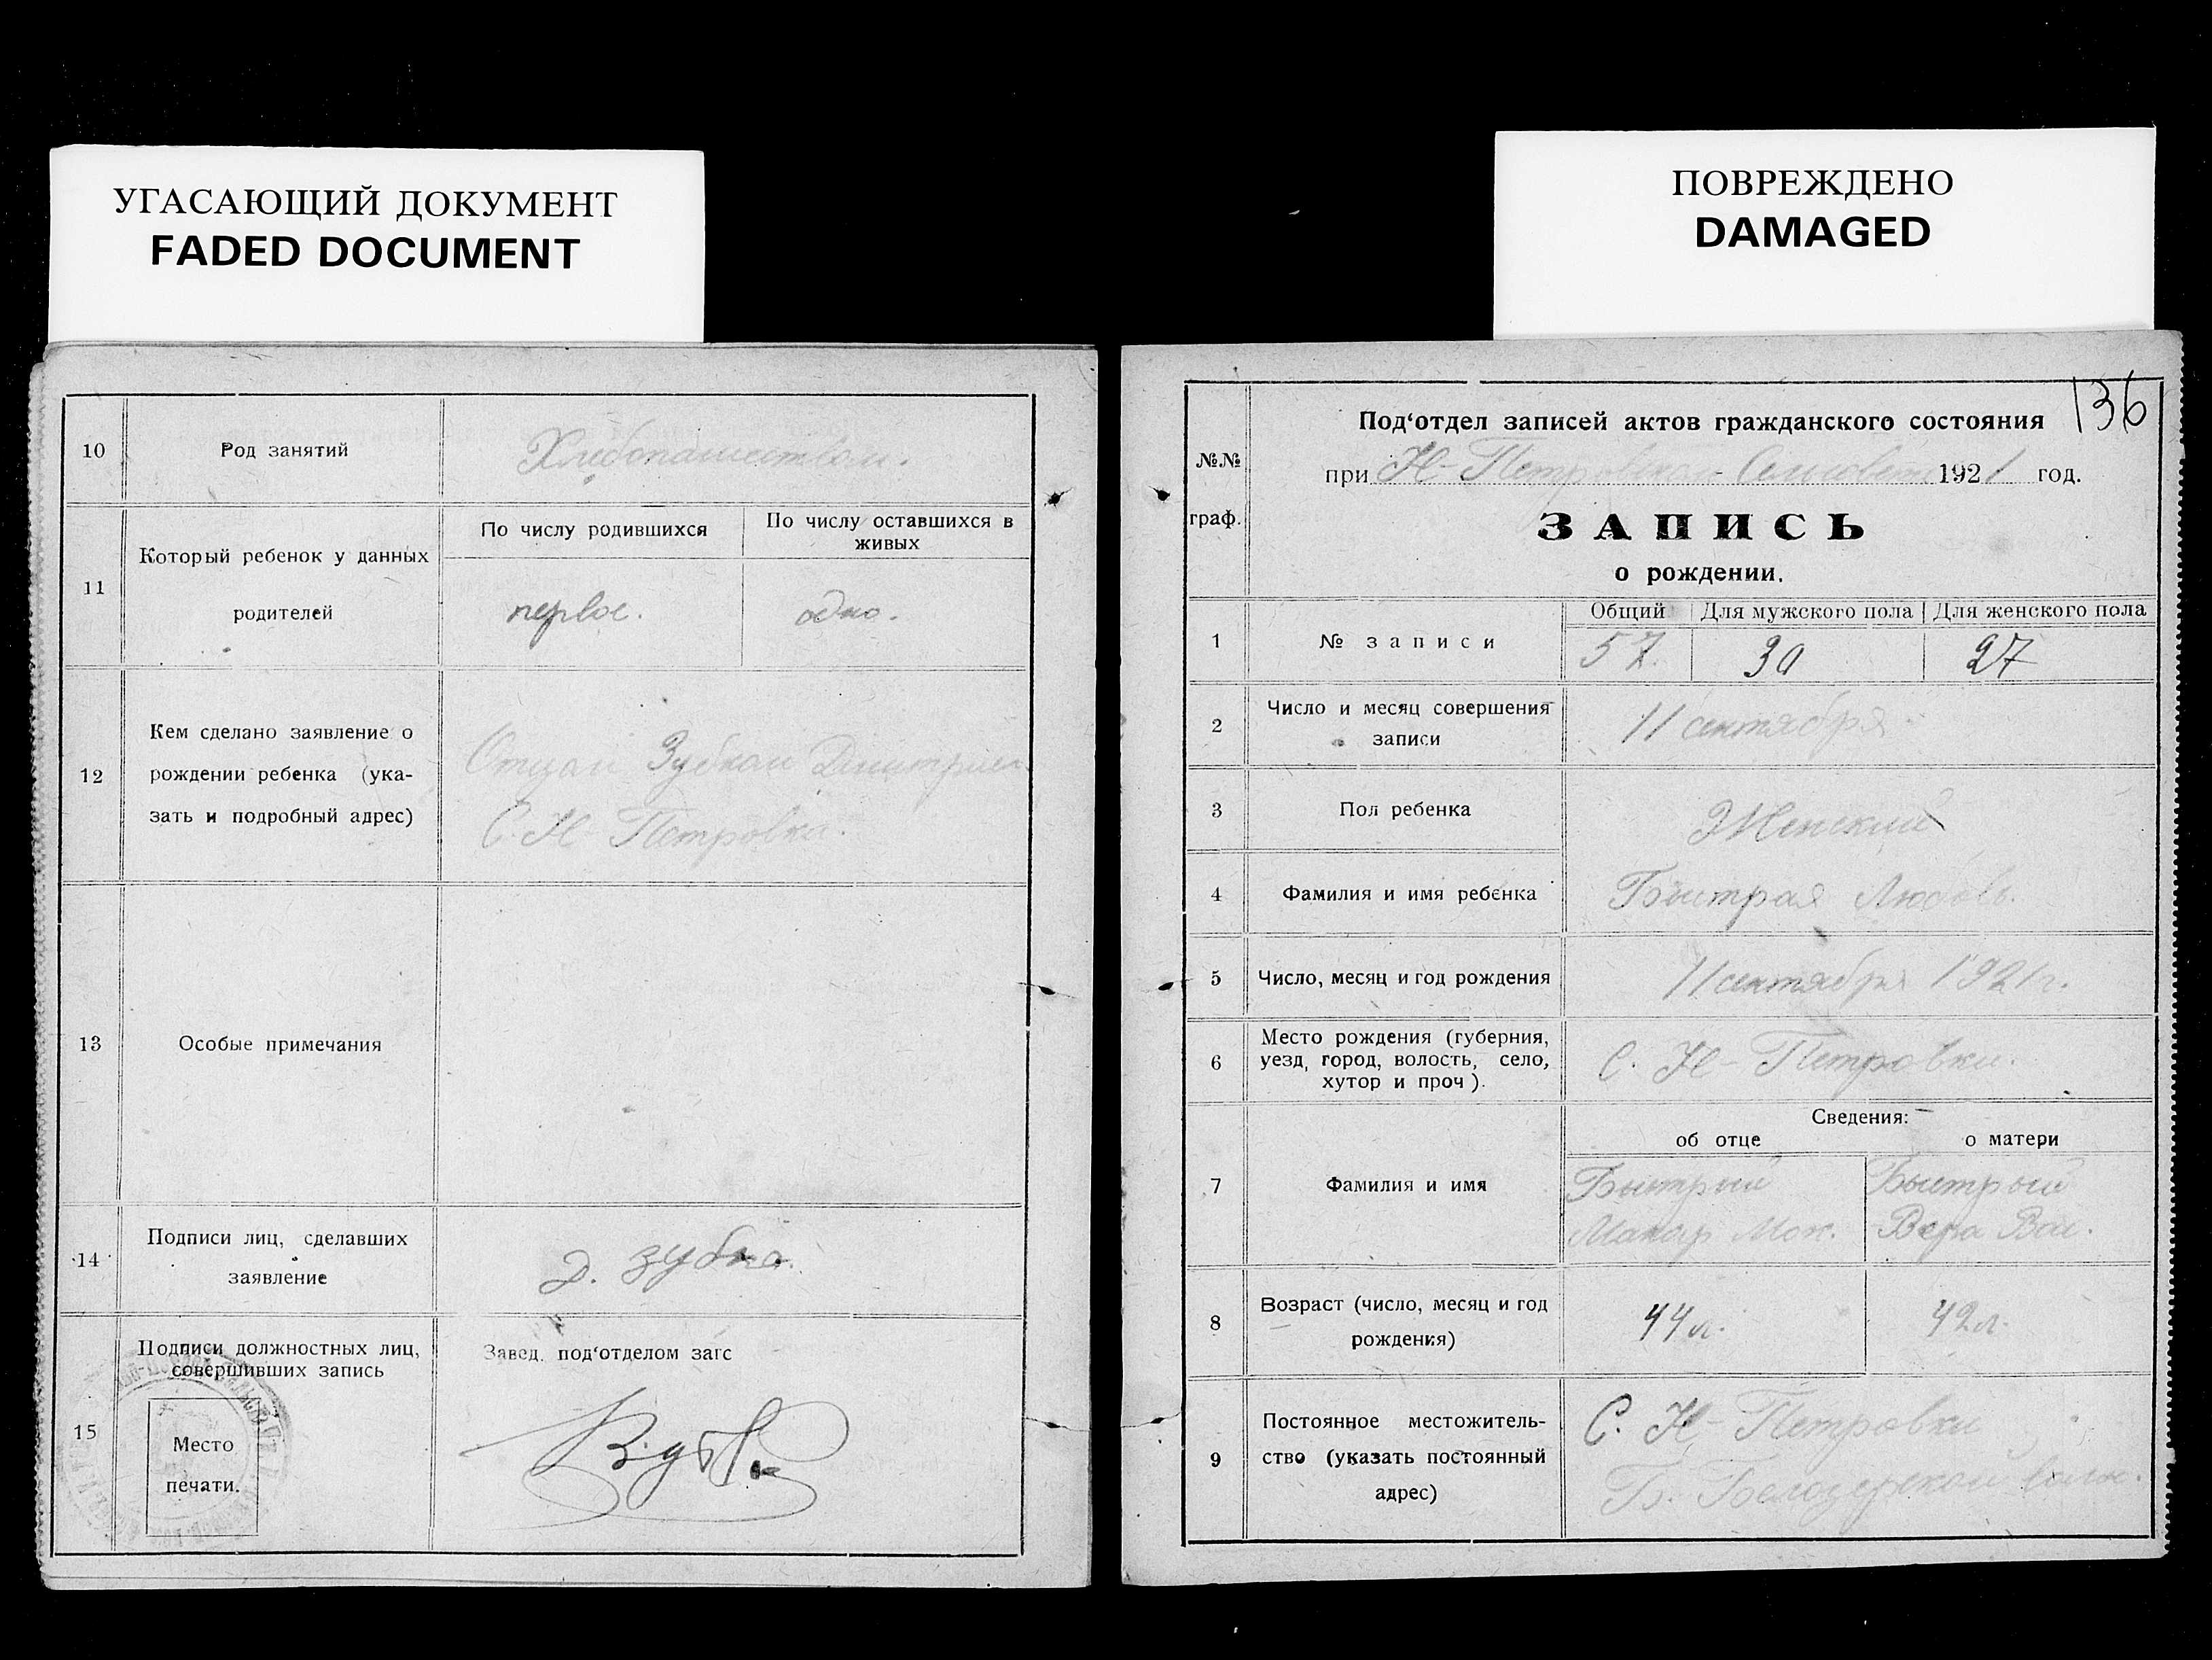 УГАСАЮЩИЙ ДОКУМЕНТ
FADED DOCUMENT
10
Род занятий
Хлебопашеством.
11
Который ребенок у данных
родителей
По числу родившихся
По числу оставшихся в
живых
первое.
одно.
12
Кем сделано заявление о
рождении ребенка (ука-
зать и подробный адрес)
Отцом Зубком Дмитрием
С. Н-Петровка.
13
Особые примечания
14
Подписи лиц, сделавших
заявление
Д. Зубко.
15
Подписи должностных лиц,
совершивших запись
Место
печати.
Завед. под‘отделом загс
ПОВРЕЖДЕНО
DAMAGED
136
№№
граф.
Под‘отдел записей актов гражданского состояния
при Н-Петровском Сельсовете 1921 год.
ЗАПИСЬ
о рождении.
1
№ записи
Общий
Для мужского пола
Для женского пола
57.
30
27
2
Число и месяц совершения
записи
11 сентября
3
Пол ребенка
Женский
4
Фамилия и имя ребенка
Быстрая Любовь.
5
Число, месяц и год рождения
11 сентября 1921 г.
6
Место рождения (губерния,
уезд, город, волость, село,
хутор и проч).
С. Н-Петровки.
Сведения:
об отце
о матери
7
Фамилия и имя
Быстрый
Макар
Быстрый
Вера Вас.
8
Возраст (число, месяц и год
рождения)
44 л.
42 л.
9
Постоянное местожитель-
ство (указать постоянный
адрес)
С. Н-Петровки
Б. Белозерской волос.